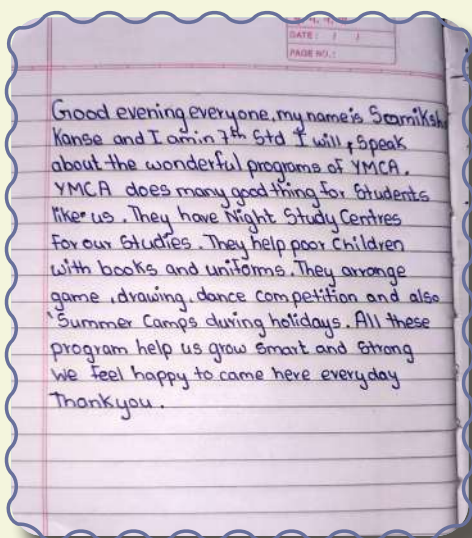 DATE: / /
PAGE NO.:
Good evening everyone, my name is Samiksh
Kanse and I am in 7th Std I will, Speak
about the wonderful programs of YMCA.
YMCA does many good thing for Students
like us. They have Night Study Centres
for our Studies. They help poor Children
with books and uniforms. They arrange
game, drawing, dance competition and also
Summer Camps during holidays. All these
program help us grow Smart and Strong
We feel happy to came here everyday
Thankyou.